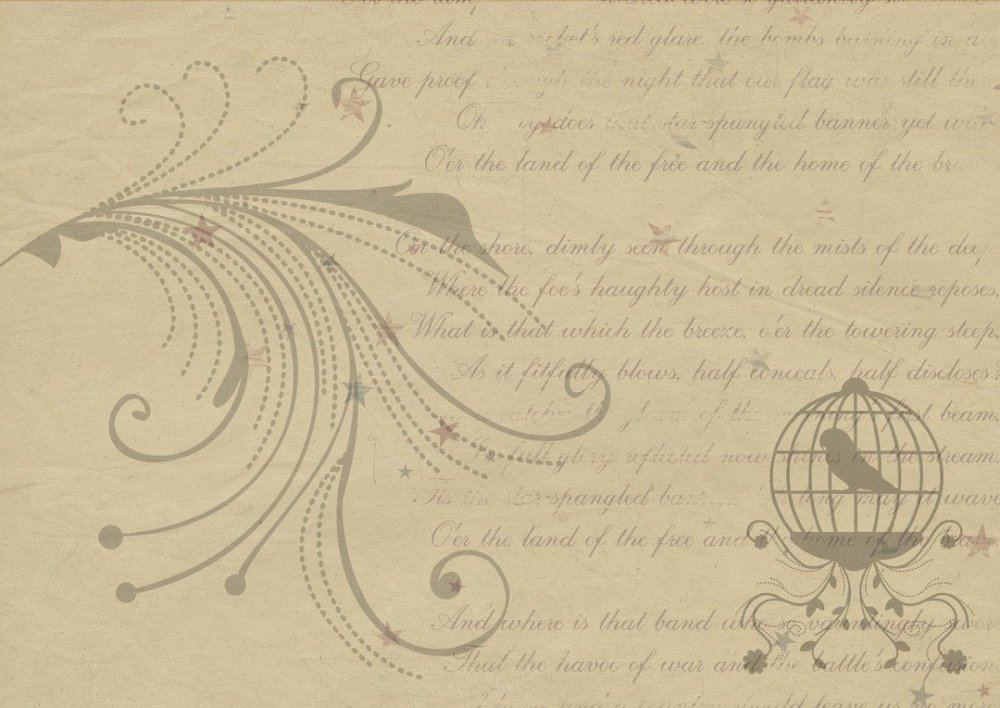 And rocket's red glare, the bombs in a
Gave proof the night that our flag was still
does that star-spangled banner yet
O'er the land of the free and the home of the
On the shore, dimly seen through the mists of the
Where the foe's haughty host in dread silence reposes,
What is that which the breeze, o'er the towering steep,
As it fitfully blows, half conceals, half discloses?
of the first beam,
In full glory reflected now shines in the stream.
'Tis the star-spangled long may it wave
O'er the land of the free and the home of the
And where is that band who so vauntingly
That the havoc of war and the battle's confusion
leave us no more